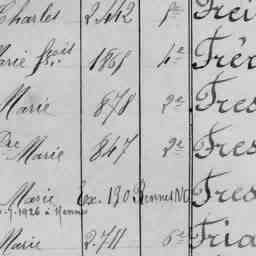 Charles 2.442 8e Frei
Marie frois 1868 4e Fréd
Marie 878 2e Fres
Dre Marie 847 2e Fres
Marie Ex. 130 Rennes NO Fres
.7.1926 à Rennes
Marie 2.711 6e Fria